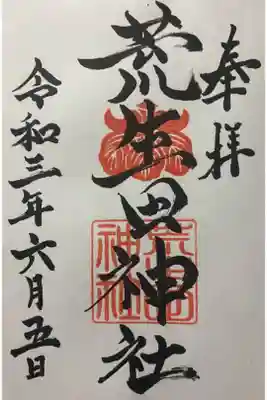 奉拝
荒生田神社
令和三年六月五日